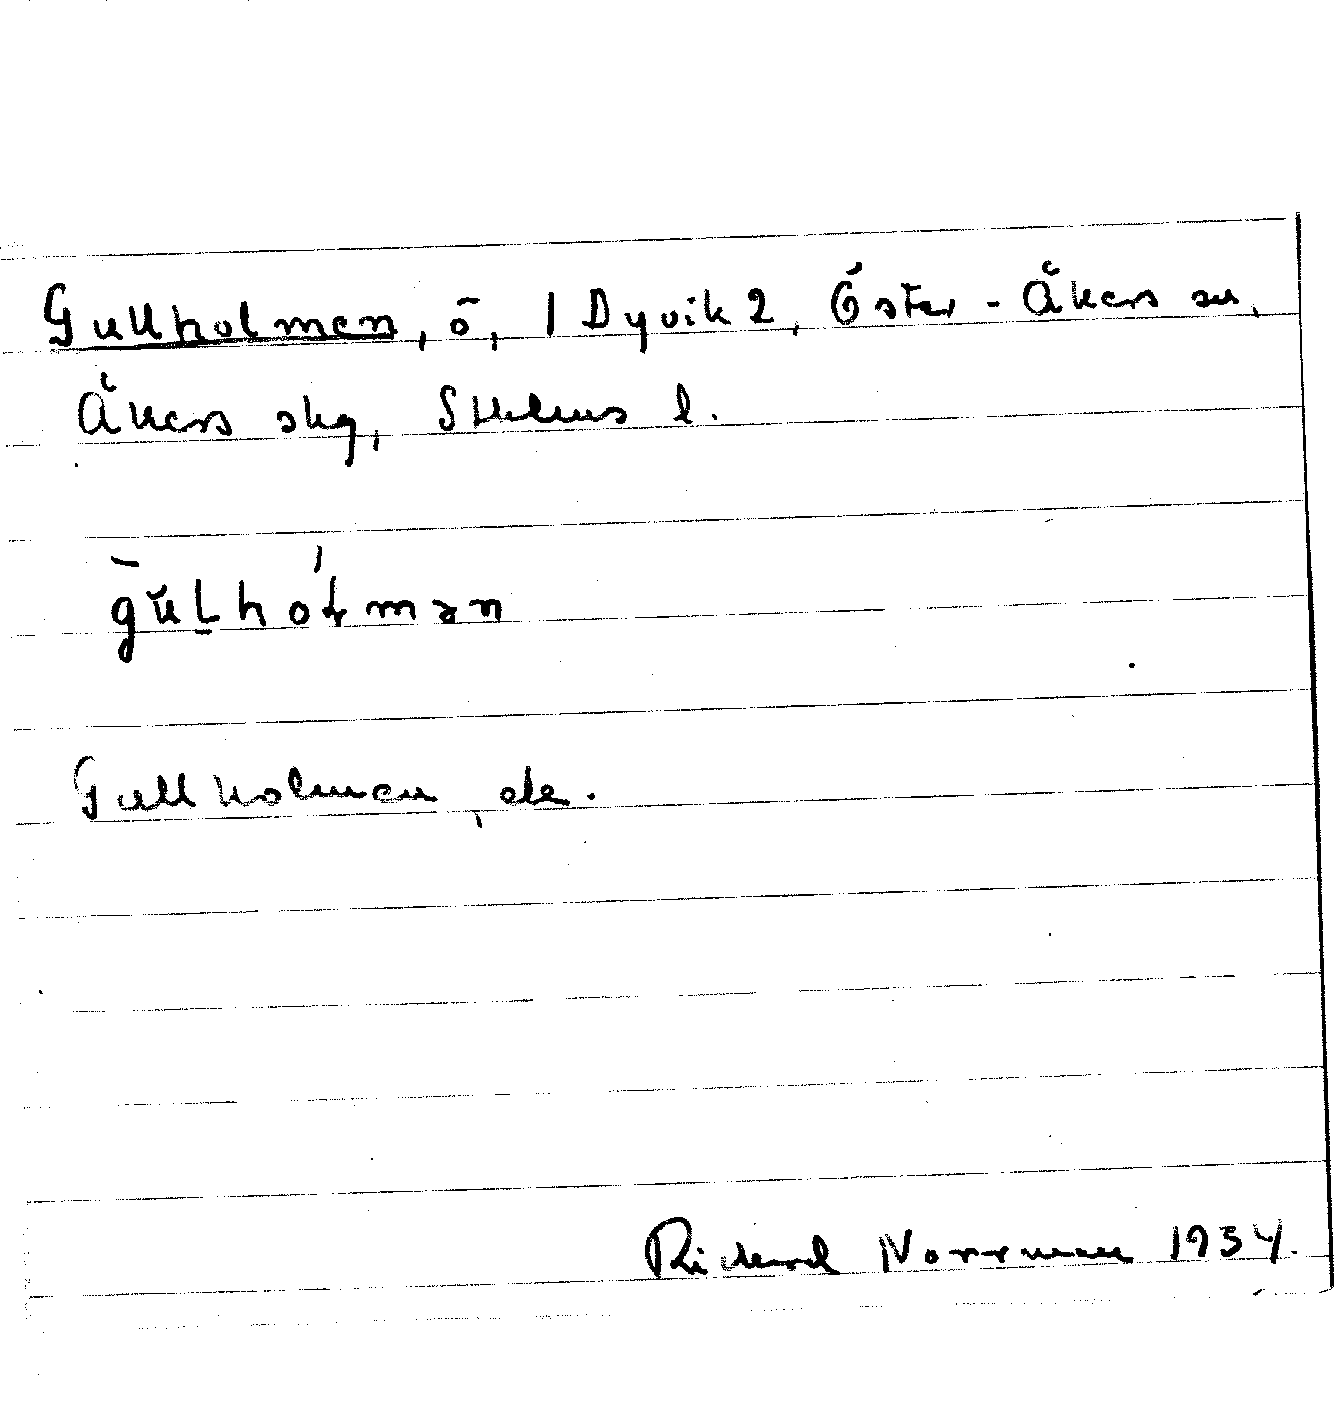 Gullholmen, ö, 1 Dyvik 2, Öster-Åkers sn,
Åkers skg, Sthlms l.
gu̇lhoɫmən
Gullholmen, ek.
Richard Norrman 1934.